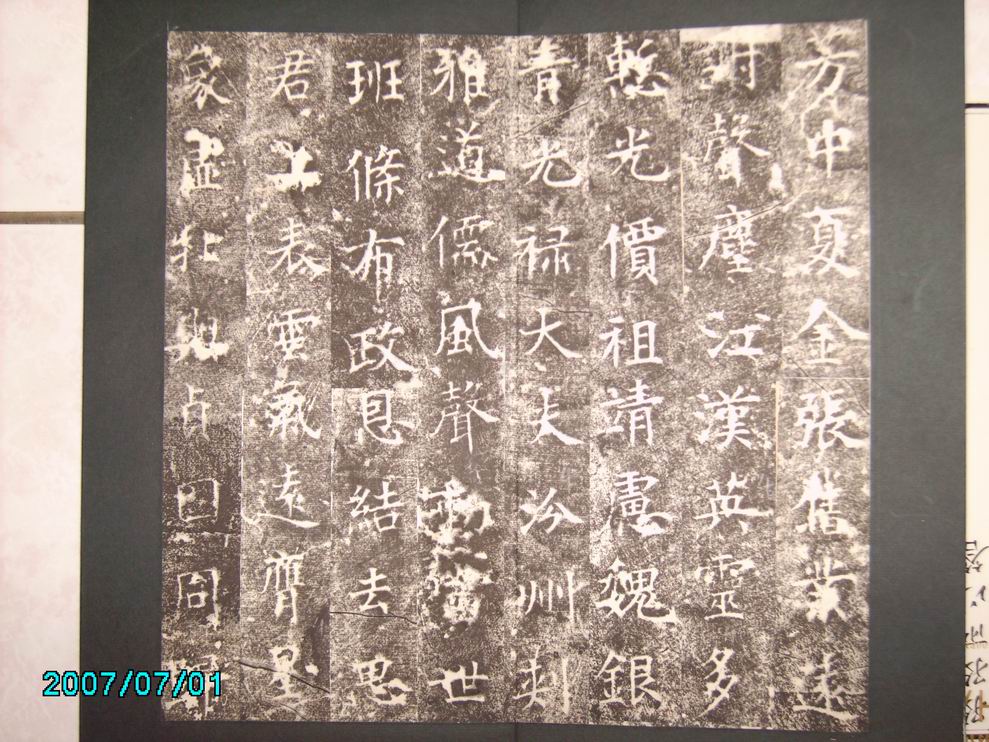 芳中夏金張舊業遠
封聲塵江漢英靈多
慙光價祖靖憲魏銀
青光祿大夫汾州刺
雅道儒風聲世
班條布政息結去思
君上表雲氣遠膺星
象虛貞固周歸
2007/07/01